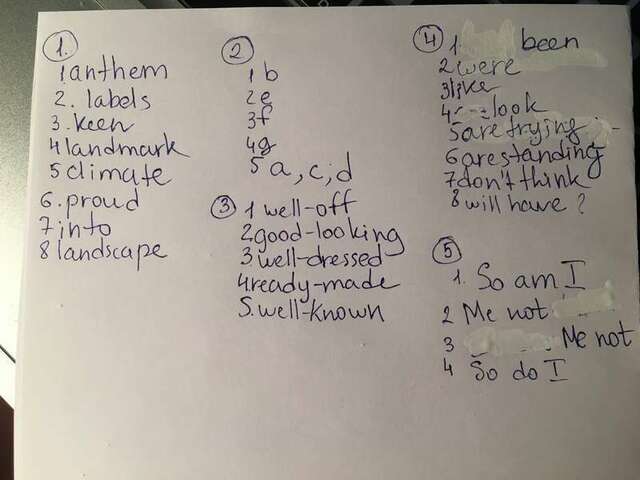 1.
1 anthem
2. labels
3. keen
4 landmark
5 climate
6. proud
7 into
8 landscape
2
1 b
2 e
3 f
4 g
5 a, c, d
3
1 well-off
2 good-looking
3 well-dressed
4 ready-made
5. well-known
4
1. been
2 were
3 like
4 look
5 are trying
6 are standing
7 don't think
8 will have?
5
1. So am I
2 Me not
3 Me not
4 So do I